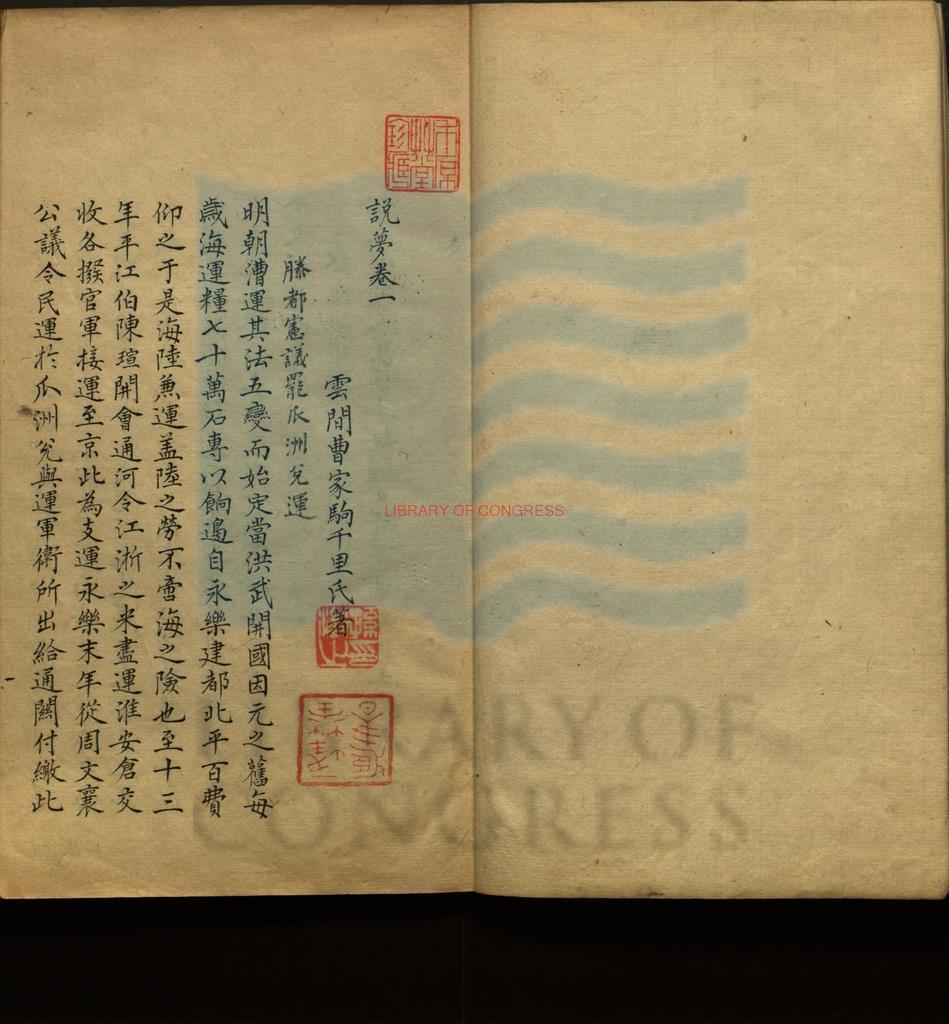 說夢卷一
雲間曹家駒千里氏著
滕都憲議罷瓜洲兌運
明朝漕運其法五變而始定當洪武開國因元之舊每
歲海運糧七十萬石專以餉邊自永樂建都北平百費
仰之于是海陸兼運盖陸之勞不啻海之險也至十三
年平江伯陳瑄開會通河令江浙之米盡運淮安倉交
收各撥官軍接運至京此為支運永樂末年從周文襄
公議令民運於瓜洲兌與運軍衛所出給通關付繳此
LIBRARY OF CONGRESS
LIBRARY OF
CONGRESS